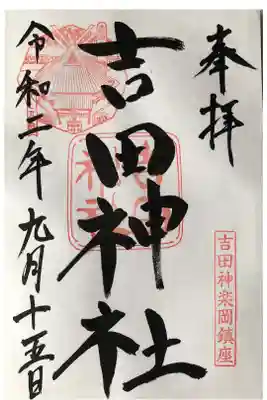 奉拝
吉田神楽岡鎮座
吉田神社
令和二年九月十五日